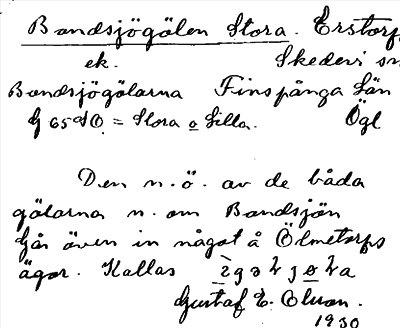 Bandsjögölen Stora. Erstorps
ek. Skedevi sn
Bandsjögölarna Finspånga Län
G 65 SO = Stora o Lilla. Ögl
Den n.ö. av de båda
gölarna n. om Bandsjön
Går även in något å Ölmetorps
ägor. Kallas
Gustaf E. Olsson.
1930